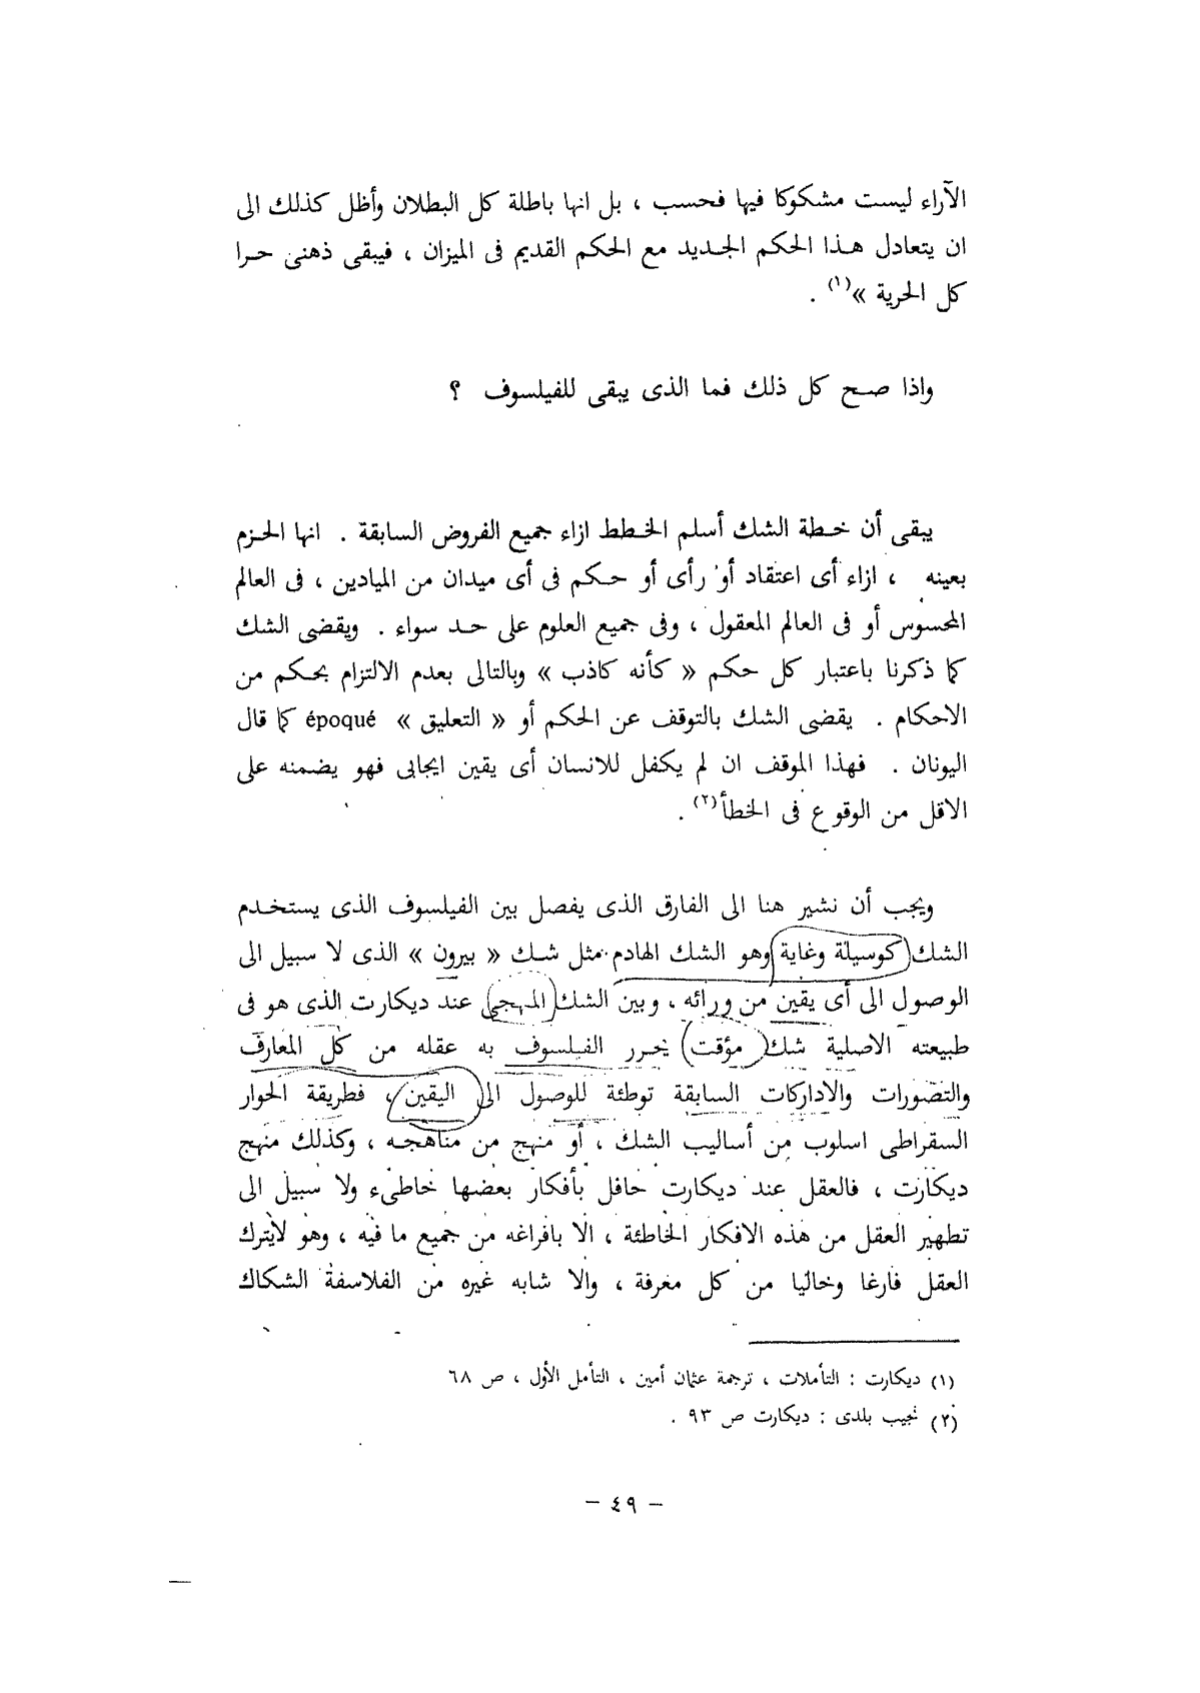 الآراء ليست مشكوكا فيها فحسب ، بل انها باطلة كل البطلان وأظل كذلك الى
ان يتعادل هذا الحكم الجديد مع الحكم القديم فى الميزان ، فيبقى ذهنى حرا
كل الحرية »(١) .
واذا صح كل ذلك فما الذى يبقى للفيلسوف ؟
يبقى أن خطة الشك أسلم الخطط ازاء جميع الفروض السابقة . انها الحزم
بعينه ، ازاء أى اعتقاد أو رأى أو حكم فى أى ميدان من الميادين ، فى العالم
المحسوس أو فى العالم المعقول ، وفى جميع العلوم على حد سواء . ويقضى الشك
كما ذكرنا باعتبار كل حكم « كأنه كاذب » وبالتالى بعدم الالتزام بحكم من
الاحكام . يقضى الشك بالتوقف عن الحكم أو « التعليق » époqué كما قال
اليونان . فهذا الموقف ان لم يكفل للانسان أى يقين ايجابى فهو يضمنه على
الاقل من الوقوع فى الخطأ(٢) .
ويجب أن نشير هنا الى الفارق الذى يفصل بين الفيلسوف الذى يستخدم
الشك كوسيلة وغاية وهو الشك الهادم مثل شك « بيرون » الذى لا سبيل الى
الوصول الى أى يقين من ورائه ، وبين الشك المنهجى عند ديكارت الذى هو فى
طبيعته الاصلية شك مؤقت يحرر الفيلسوف به عقله من كل المعارف
والتصورات والاداركات السابقة توطئة للوصول الى اليقين ، فطريقة الحوار
السقراطى اسلوب من أساليب الشك ، أو منهج من مناهجه ، وكذلك منهج
ديكارت ، فالعقل عند ديكارت حافل بأفكار بعضها خاطىء ولا سبيل الى
تطهير العقل من هذه الافكار الخاطئة ، الا بافراغه من جميع ما فيه ، وهو لايترك
العقل فارغا وخاليا من كل معرفة ، والا شابه غيره من الفلاسفة الشكاك
(١) ديكارت : التأملات ، ترجمة عثمان أمين ، التأمل الأول ، ص ٦٨
(٢) نجيب بلدى : ديكارت ص ٩٣ .
– ٤٩ –